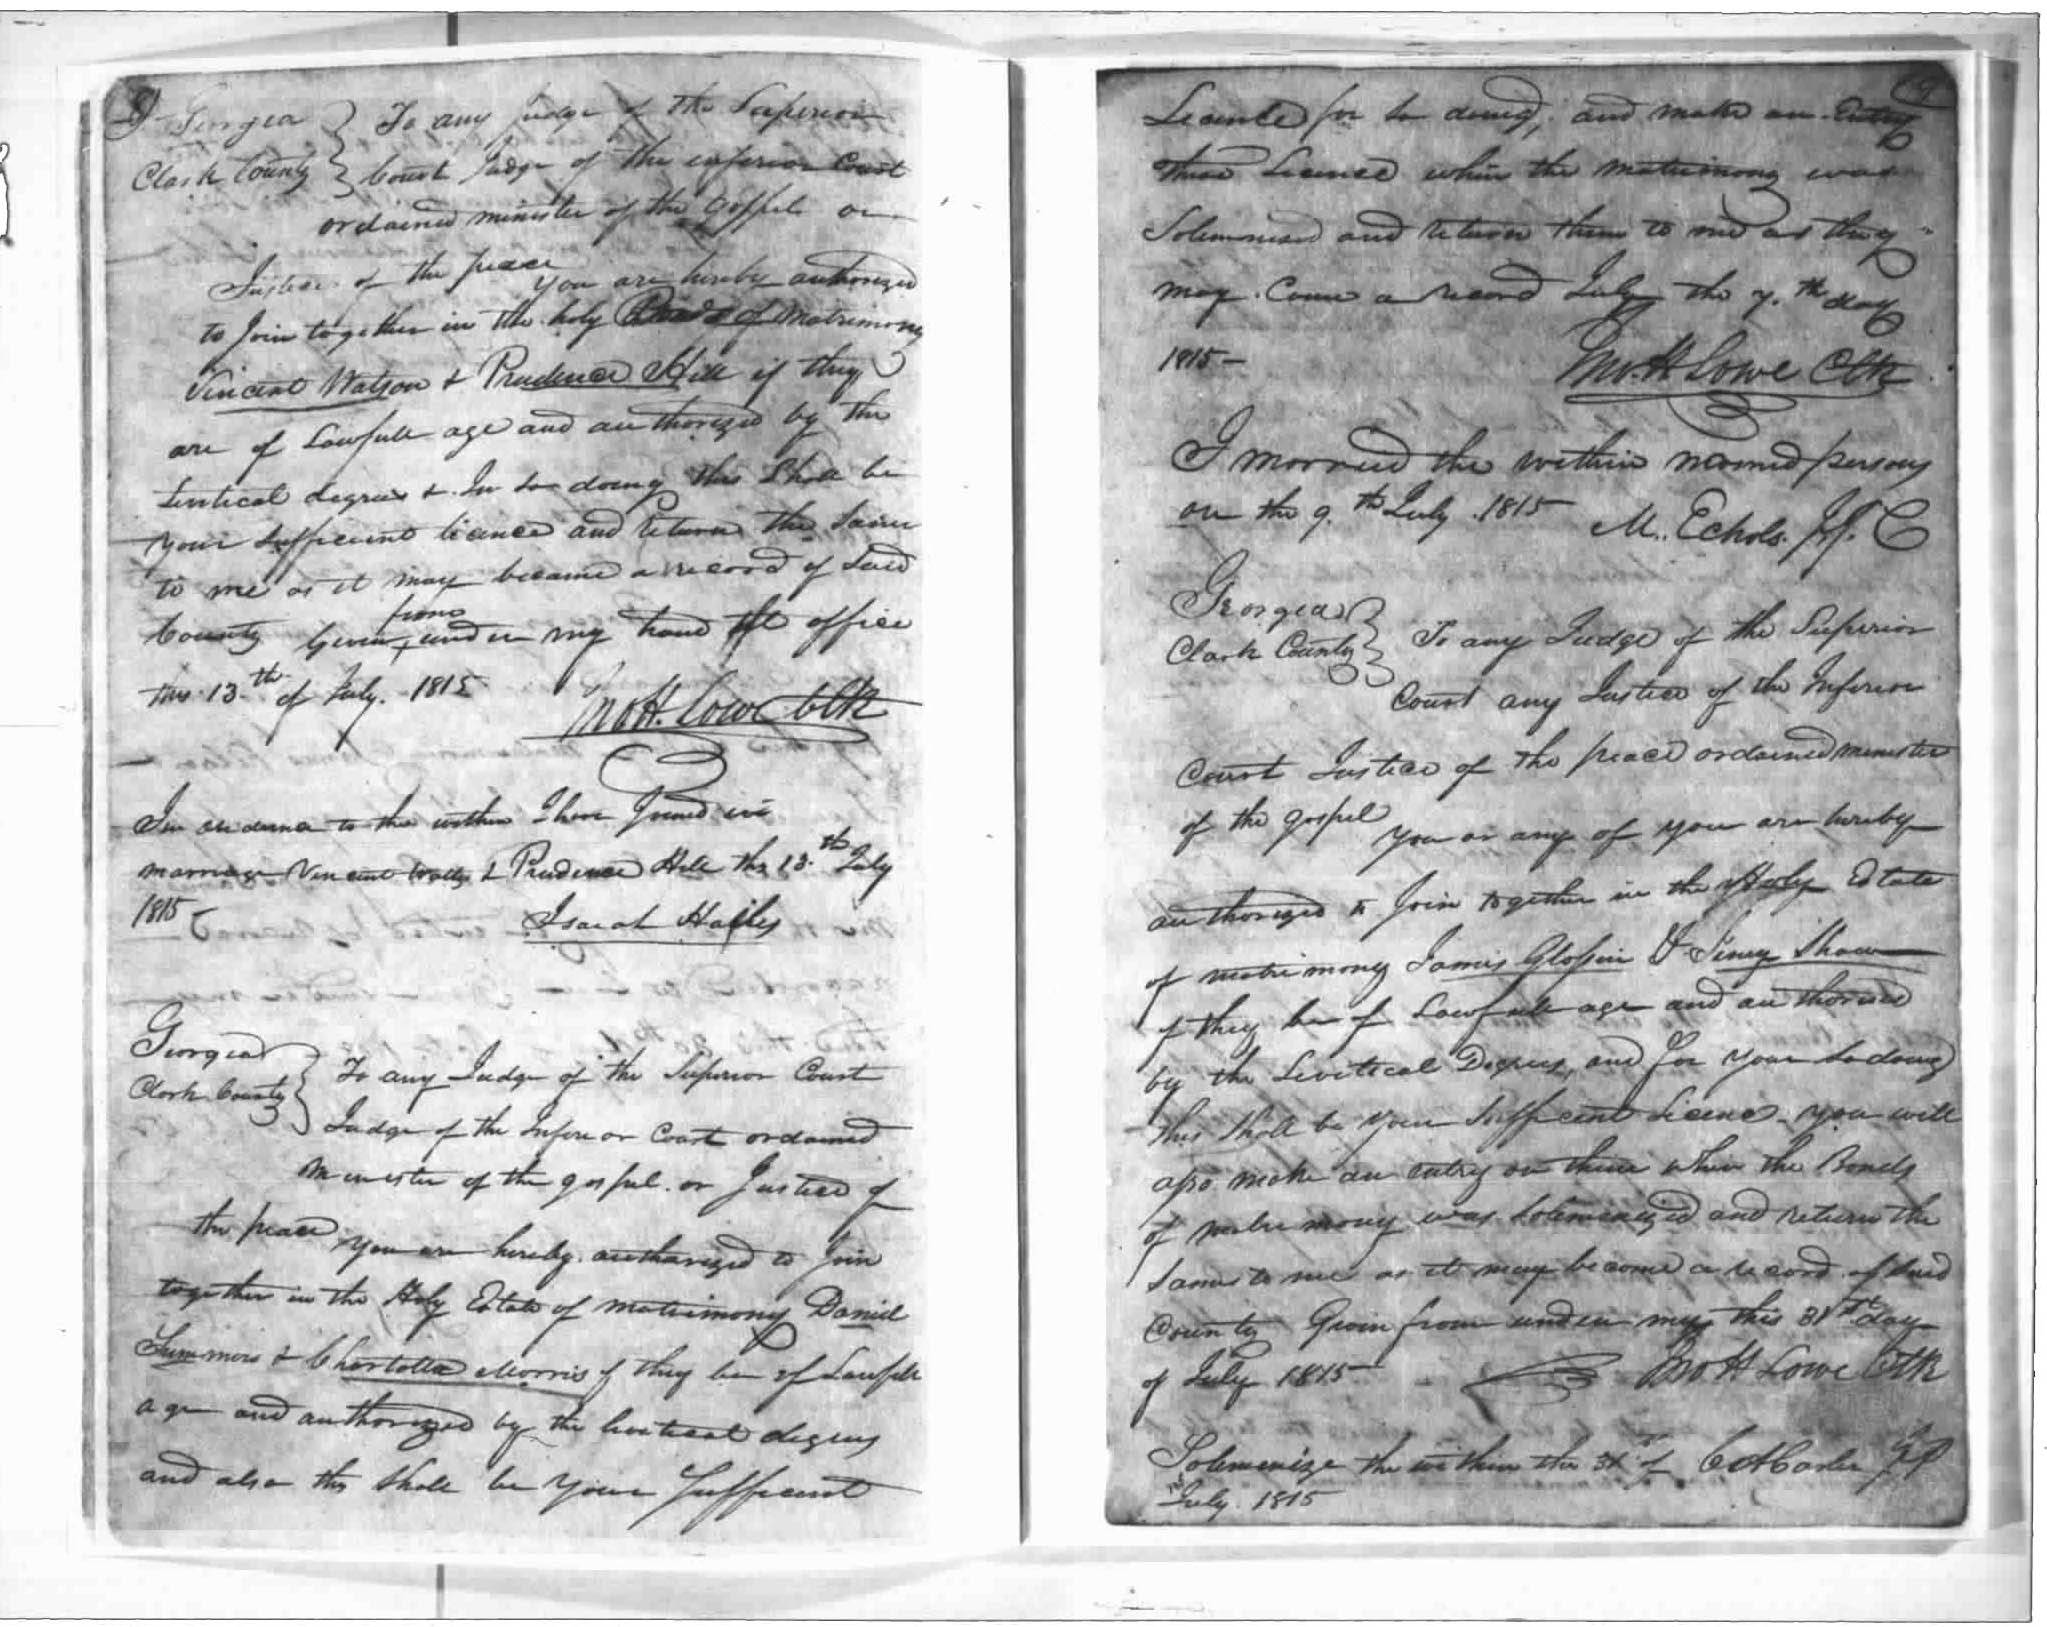 Georgea } To any Judge of the Superior
Clark County } Court Judge of the inferior Court
ordained minister of the Gospel or
Justice of the peace You are hereby authorized
to Join together in the holy of Matrimony
Vincent Watson & Prudence Hill if they
are of Lawfull age and authorized by the
Levitical degrees & In so doing this Shall be
your sufficient licence and return the Same
to me as it may became a record of Said
County Given from under my hand office
this 13th of July. 1815
Jno H. Lowe Clk
In to the within I have Joined in
marriage Vincent & Prudence Hill the 13th July
1815
Isaiah Hailes
Georgea } To any Judge of the Superior Court
Clark County } Judge of the Inferior Court ordained
Minister of the gospel or Justice of
the peace You are hereby authorized to Join
together in the Holy Estate of matrimony Daniel
Summors & Charlotta Morris if they be of Lawfull
age and authorized by the Levitical degrees
and also this Shall be your Sufficent
9
Licence for so doing, and make an Entry
these Licence when the matrimony was
Solemnised and return them to me as they
may Come a record July the 7th day
1815 —
Jno. H Lowe Clk
I married the within named persons
on the 9th July 1815 M. Echols. J.I.C
Georgea } To any Judge of the Superior
Clark County } Court any Justice of the Inferior
Court Justice of the peace ordained minister
of the gospel You or any of you are hereby
authorized to Join together in the Holy Estate
of matrimony James Glossin & Siney Shaw
if they be of Lawfull age and authorised
by the Levitecal Degrees, and for your So doing
this Shall be your Sufficent Licence. you will
also make an entry on these when the Bonds
of matrimony was Solemenized and return the
Same to me as it may become a record of Said
County Given from under my this 31st day
of July 1815 Jno H Lowe Clk
Solemenize the within the 31st of J P
July. 1815